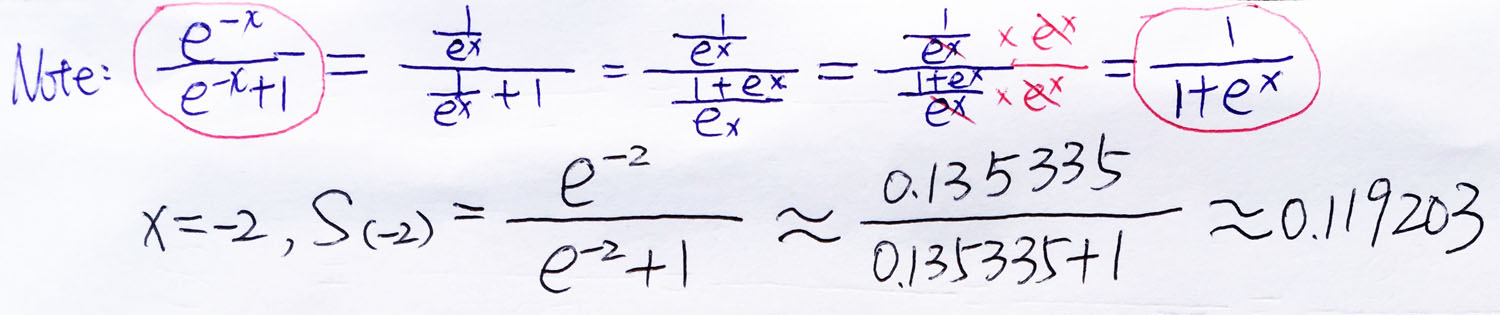 Note: \frac{e^{-x}}{e^{-x}+1} = \frac{\frac{1}{e^x}}{\frac{1}{e^x}+1} = \frac{\frac{1}{e^x}}{\frac{1+e^x}{e_x}} = \frac{\frac{1}{e^x} \times e^x}{\frac{1+e^x}{e^x} \times e^x} = \frac{1}{1+e^x}
x=-2, S(-2) = \frac{e^{-2}}{e^{-2}+1} ≈ \frac{0.135335}{0.135335+1} ≈ 0.119203